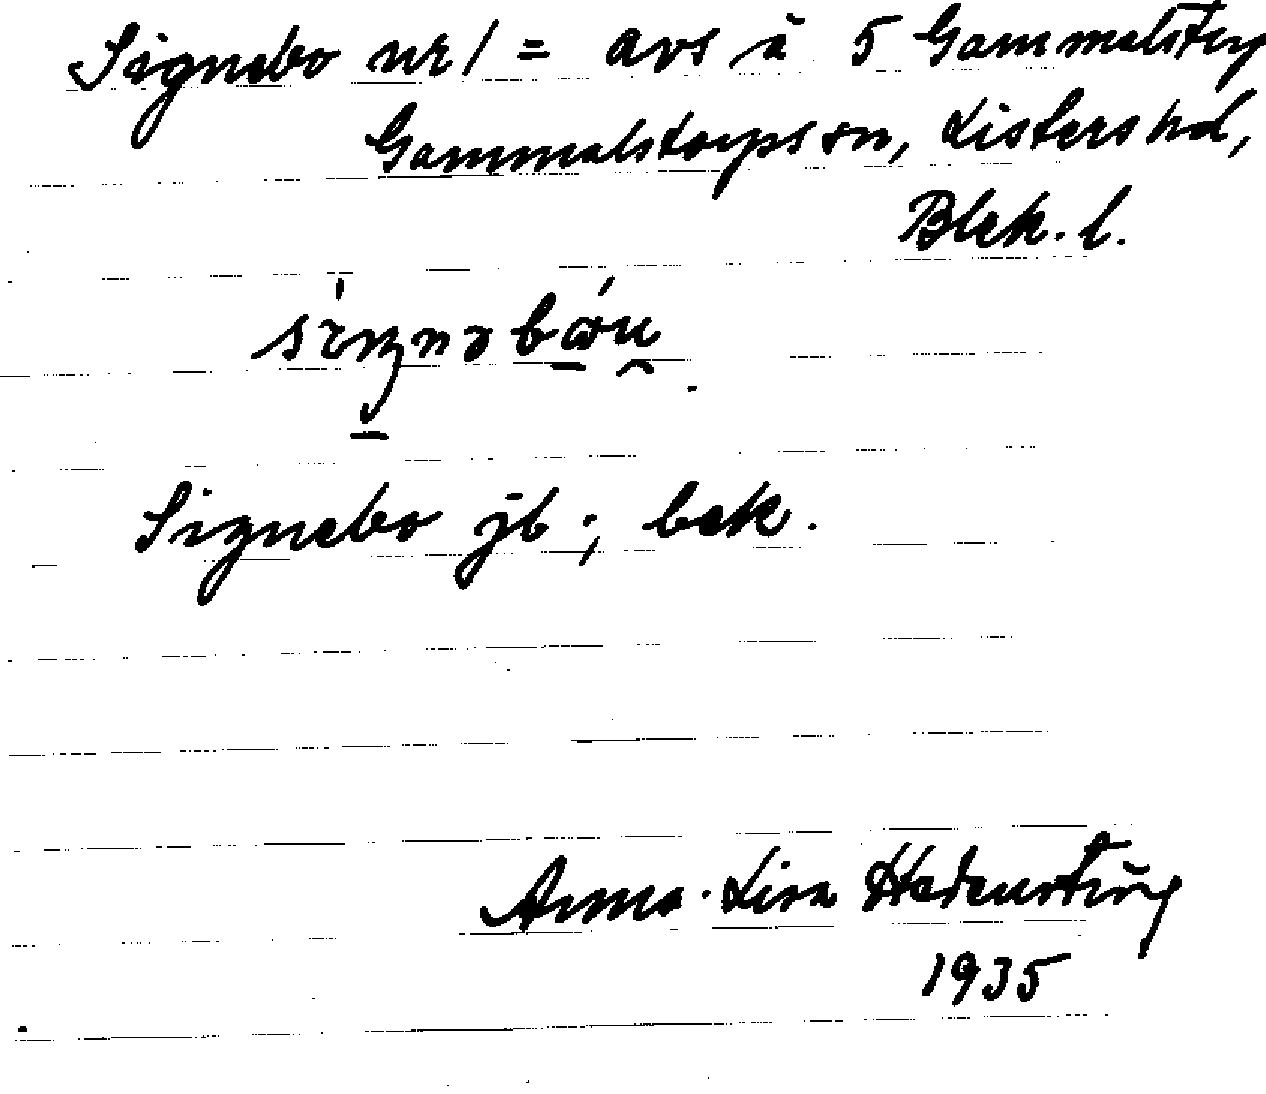 Signebo nr 1 = avs å 5 Gammalstorp
Gammalstorps sn, Listers hd,
Blek. l.
Signebo jb; bek.
Anna-Lisa Hedenstüng
1935